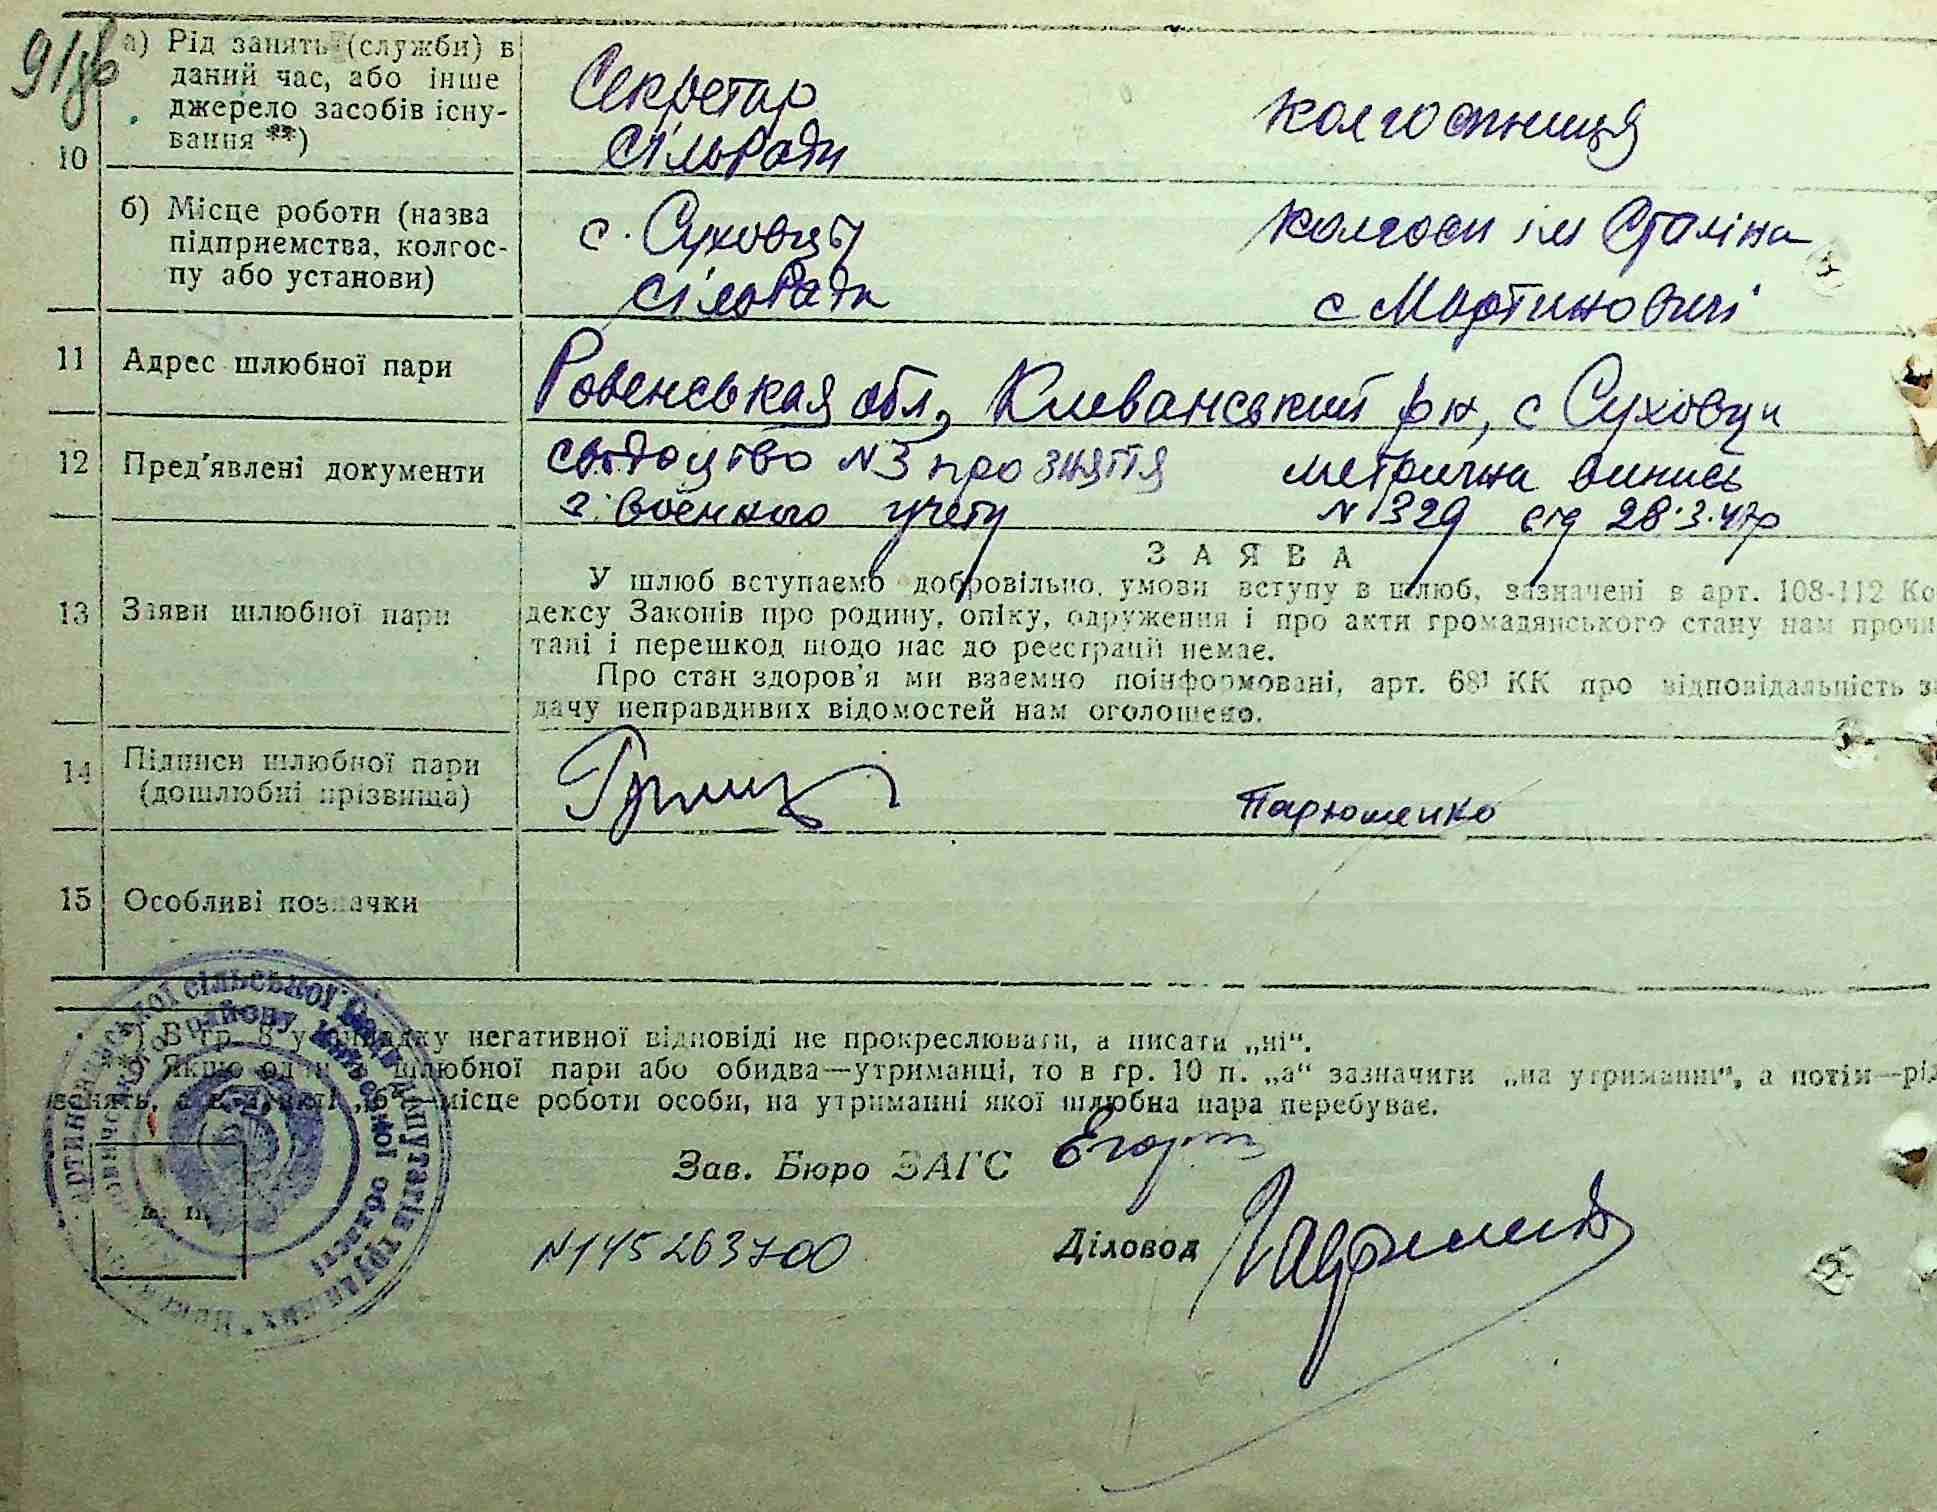 а) Рід занять (служби) в
даний час, або інше
джерело засобів існу-
вання **)
10
Секретар
сільради
колгоспниця
б) Місце роботи (назва
підприемства, колгос-
пу або установи)
с. Суховці
сільради
колгосп ім Сталіна
с Мартиновичі
11 Адрес шлюбної пари
Ровенськая обл, Клеванський рн, с Суховци
12 Пред'явлені документи
свідоцтво N3 про зняття
з воєнного учету
метрична випись
N 329 від 28.3.47р
З А Я В А
13 Заяви шлюбної пари
У шлюб вступаємо добровільно, умови вступу в шлюб, зазначені в арт. 108-112 Ко
дексу Законів про родину, опіку, одруження і про акти громадянського стану нам прочи
тані і перешкод щодо нас до реєстрації немає.
Про стан здоров'я ми взаємно поінформовані, арт. 68¹ КК про відповідальність за
дачу неправдивих відомостей нам оголошено.
14 Підписи шлюбної пари
(дошлюбні прізвища)
Парюшенко
15 Особливі позначки
*) В гр. 8 у випадку негативної відповіді не прокреслювати, а писати „ні“.
**) Якщо один з шлюбної пари або обидва—утриманці, то в гр. 10 п. „а“ зазначити „на утриманні“, а потім—рід
занять, а в пункті „б“—місце роботи особи, на утриманні якої шлюбна пара перебуває.
Зав. Бюро ЗАГС
N145263700
Діловод
м. п.
сільської Ради депутатів трудящих
району Київської області